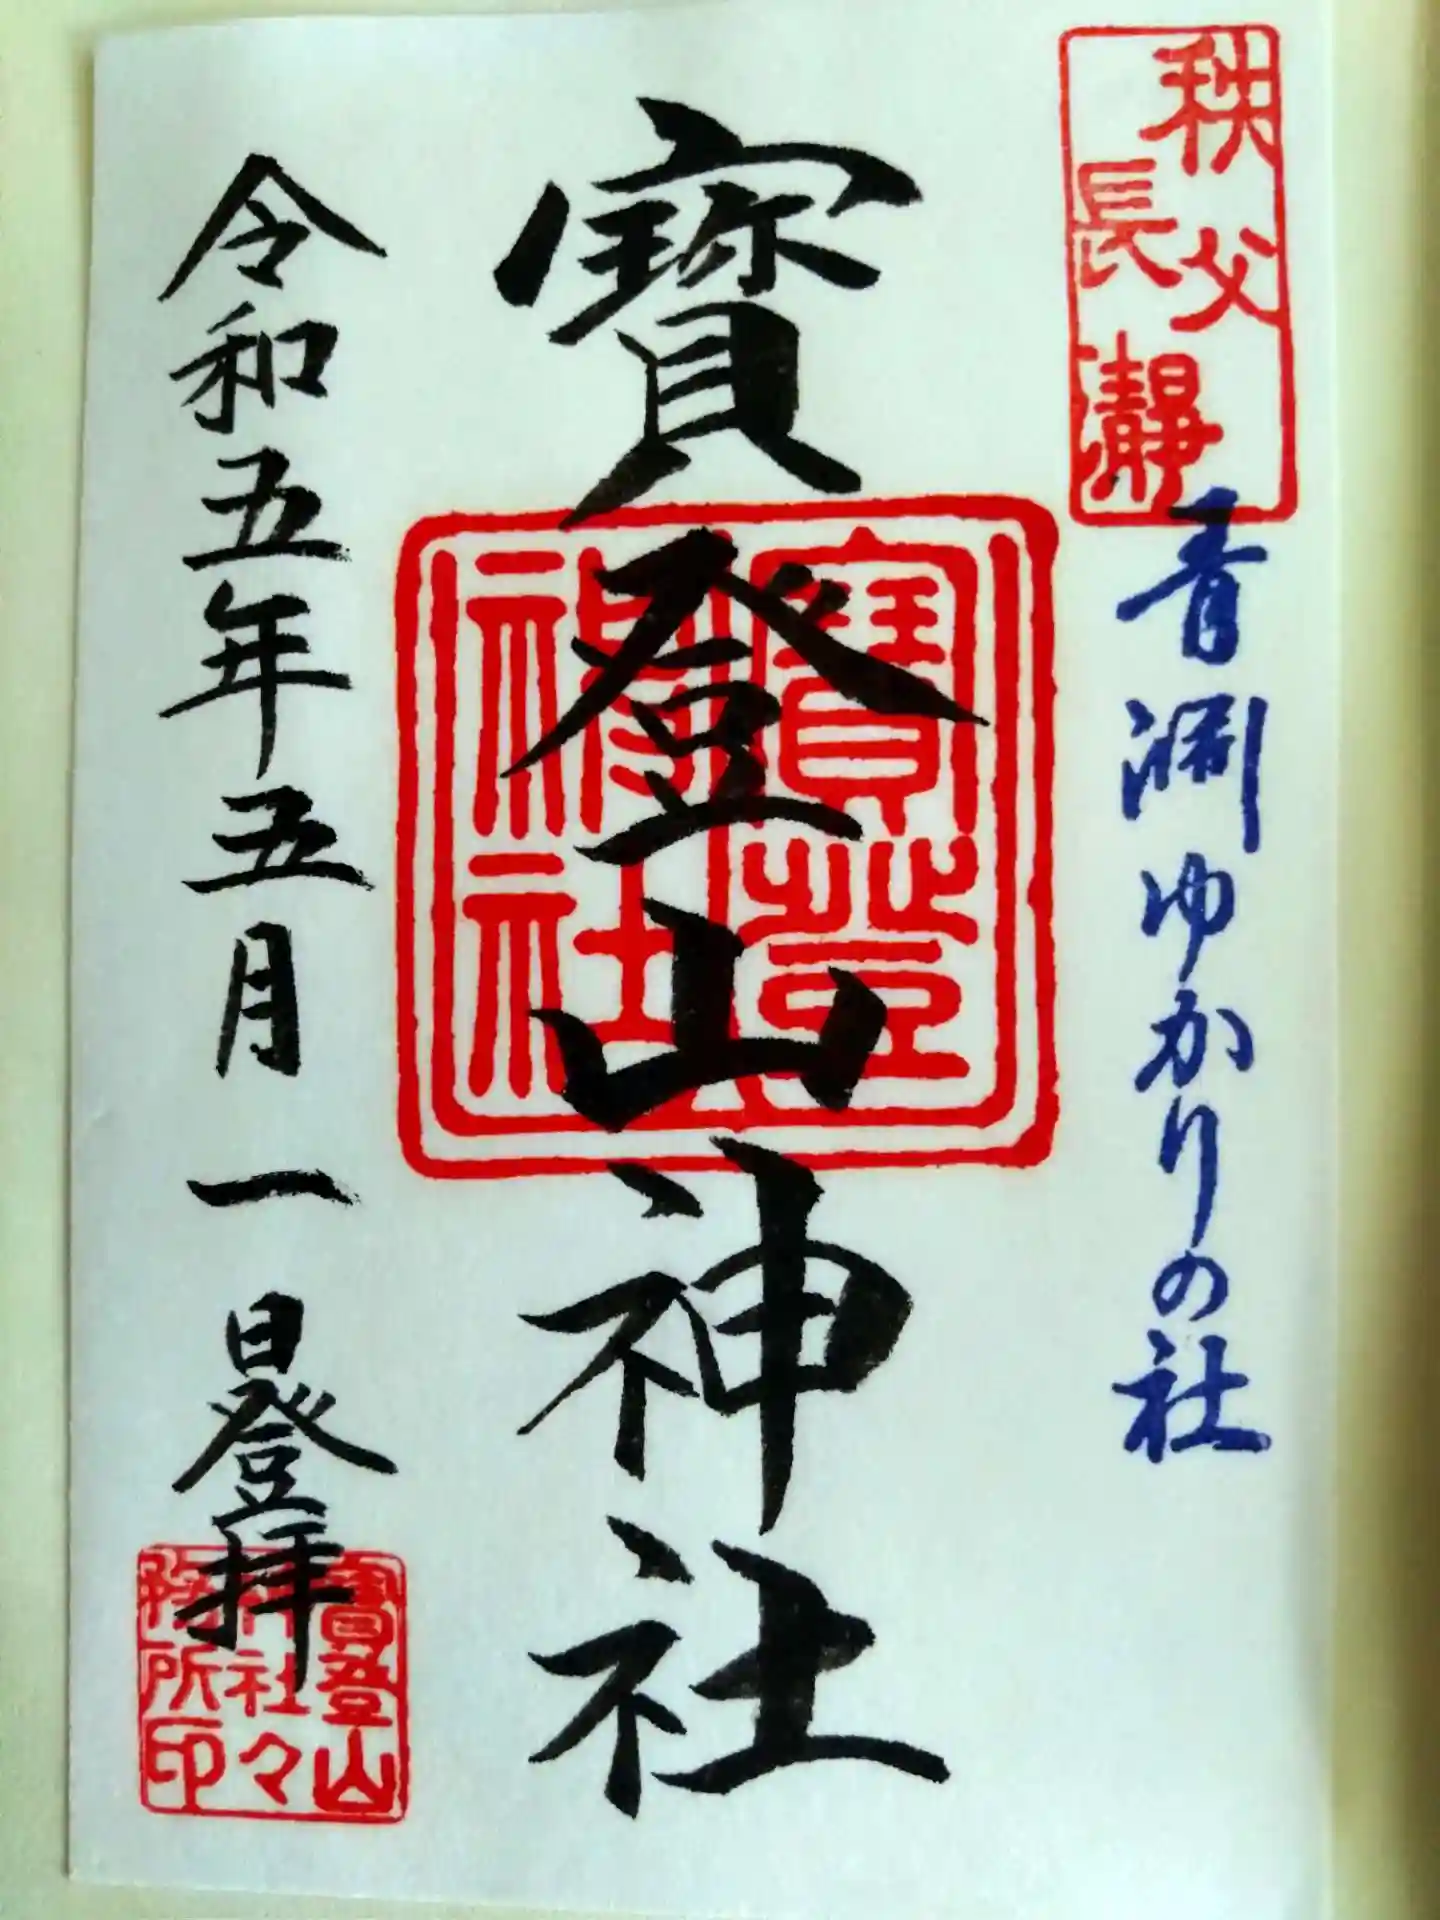 秩父
長瀞
青淵ゆかりの社
寳登山神社
寳登
神社
令和五年五月一日登拝
寳登山
神社々
務所印